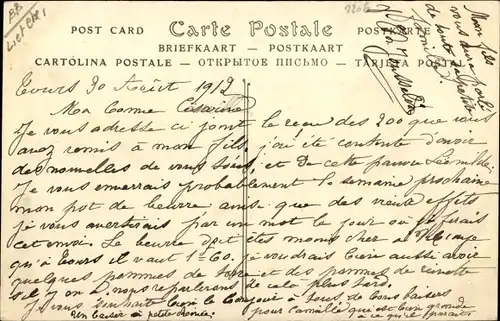 POST CARD Carte Postale POSTKARTE
BRIEFKAART — POSTKAART
CARTOLINA POSTALE — ОТКРЫТОЕ ПИСЬМО — TARJETA POSTAL
Tours 30 Août 1912
Ma Bonne Césarine
Je vous adresse ci joint le reçu des 300 que vous
avez remis à mon fils, j'ai été contente d'avoir
des nouvelles de vous tous, et de cette pauvre
Je vous enverrais probablement la semaine prochaine
mon pot de beurre ainsi que des vieux effets
je vous avertirais par un mot le jour où je ferais
cet envoi. Le beurre doit être moins cher à
qu'à Tours il vaut 1-60. je voudrais bien aussi avoir
quelques pommes de terre et des pommes de
s'il y en a, nous reparlerons de cela plus tard.
Je vous souhaite bien le bonjour à tous de bons baisers
pour Camille qui est bien grand
à ce qu'il paraît
un baiser à petite
Mon fils
vous aura parlé
de toute la petite
famille